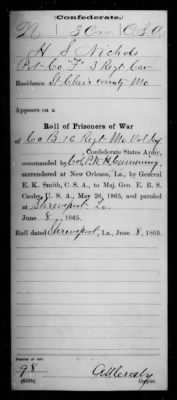 Confederate.
N 3 Cav. C.S.A.
H S Nichols
Pvt Co F 3 Regt Cav
Residence St Clair county Mo
Appears on a
Roll of Prisoners of War
of Co B 16 Regt Mo Vol Inf
Confederate States Army,
commanded by Col P. W. H. Cumming,
surrendered at New Orleans, La., by General
E. K. Smith, C. S. A., to Maj. Gen. E. R. S.
Canby, U. S. A., May 26, 1865, and paroled
at Shreveport La
June 8, 1865.
Roll dated Shreveport, La., June 8, 1865.
Number of roll:
98
(639b)
Copyist.